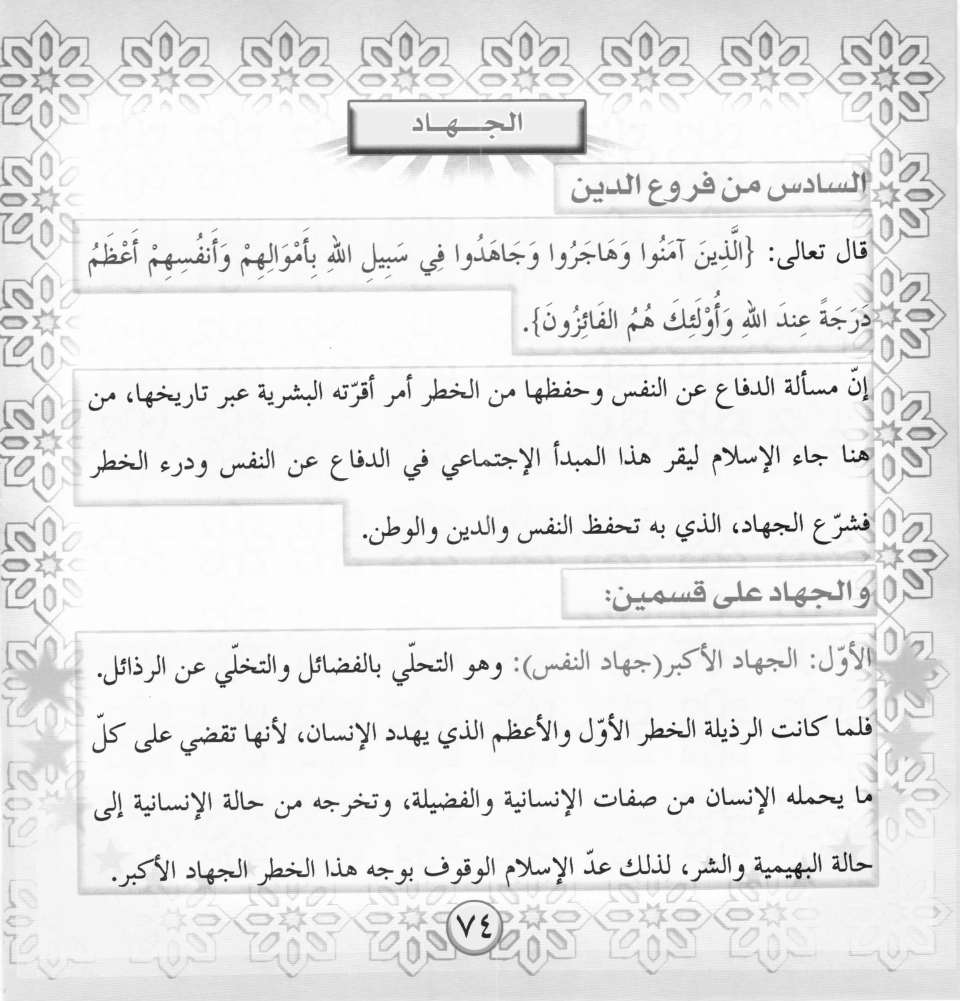 الجـــهـــاد
السادس من فروع الدين
قال تعالى: {الَّذِينَ آمَنُوا وَهَاجَرُوا وَجَاهَدُوا فِي سَبِيلِ اللهِ بِأَمْوَالِهِمْ وَأَنفُسِهِمْ أَعْظَمُ
دَرَجَةً عِندَ اللهِ وَأُوْلَئِكَ هُمُ الفَائِزُونَ}.
إنّ مسألة الدفاع عن النفس وحفظها من الخطر أمر أقرّته البشرية عبر تاريخها، من
هنا جاء الإسلام ليقر هذا المبدأ الإجتماعي في الدفاع عن النفس ودرء الخطر
فشرّع الجهاد، الذي به تحفظ النفس والدين والوطن.
والجهاد على قسمين:
الأوّل: الجهاد الأكبر(جهاد النفس): وهو التحلّي بالفضائل والتخلّي عن الرذائل.
فلما كانت الرذيلة الخطر الأوّل والأعظم الذي يهدد الإنسان، لأنها تقضي على كلّ
ما يحمله الإنسان من صفات الإنسانية والفضيلة، وتخرجه من حالة الإنسانية إلى
حالة البهيمية والشر، لذلك عدّ الإسلام الوقوف بوجه هذا الخطر الجهاد الأكبر.
٧٤